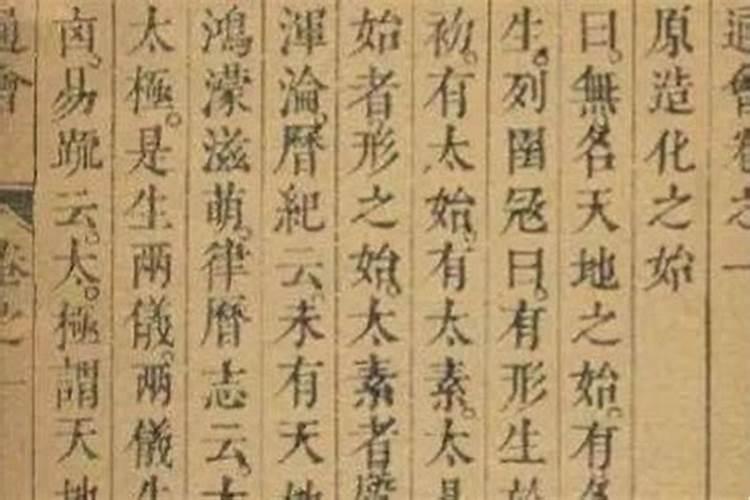 通會卷之一
原造化之始
曰。無名天地之始。有名
生。列圄冦曰。有形生於
𥘉。有太始。有太素。太易
始者形之始。太素者
渾淪。曆紀云。未有天地
鴻濛滋萌。律曆志云。太
太極。是生兩儀。兩儀生
卤。易䟽云。太。極謂天地
通會 卷之一